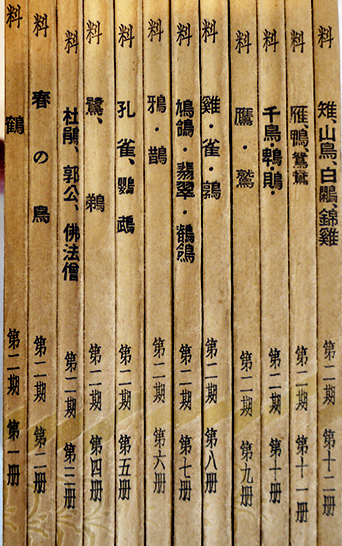 料 鶴 第二期 第一册
料 春の鳥 第二期 第二册
料 杜鵑、郭公、佛法僧 第二期 第三册
料 鷺、鵜 第二期 第四册
料 孔雀、鸚鵡 第二期 第五册
料 鴉・鵲 第二期 第六册
料 鳩鴿・翡翠・鶺鴒 第二期 第七册
料 雞・雀・鶉 第二期 第八册
料 鷹・鷲 第二期 第九册
料 千鳥・鵯・鵙・ 第二期 第十册
料 雁、鴨、鴛鴦 第二期 第十一册
料 雉、山鳥、白鷴、錦雞 第二期 第十二册